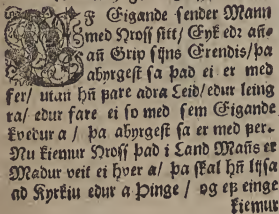 EF Eigande sender Mann
med Hross sitt/ Eyk edr an̄-
an̄ Grip sijns Erendis/ pa
abyrgest sa pad ei er med
fer/ utan hn̄ pare adra Leid/ edur leing
ra/ edur fare ei so med sem Eigande
kvedur a/ pa abyrgest sa er med per-
Nu kiemur Hross pad i Land Mans er
Madur veit ei hver a/ pa skal hn̄ lijsa
ad Kyrkiu edur a Pinge/ og eh einge
kiemur